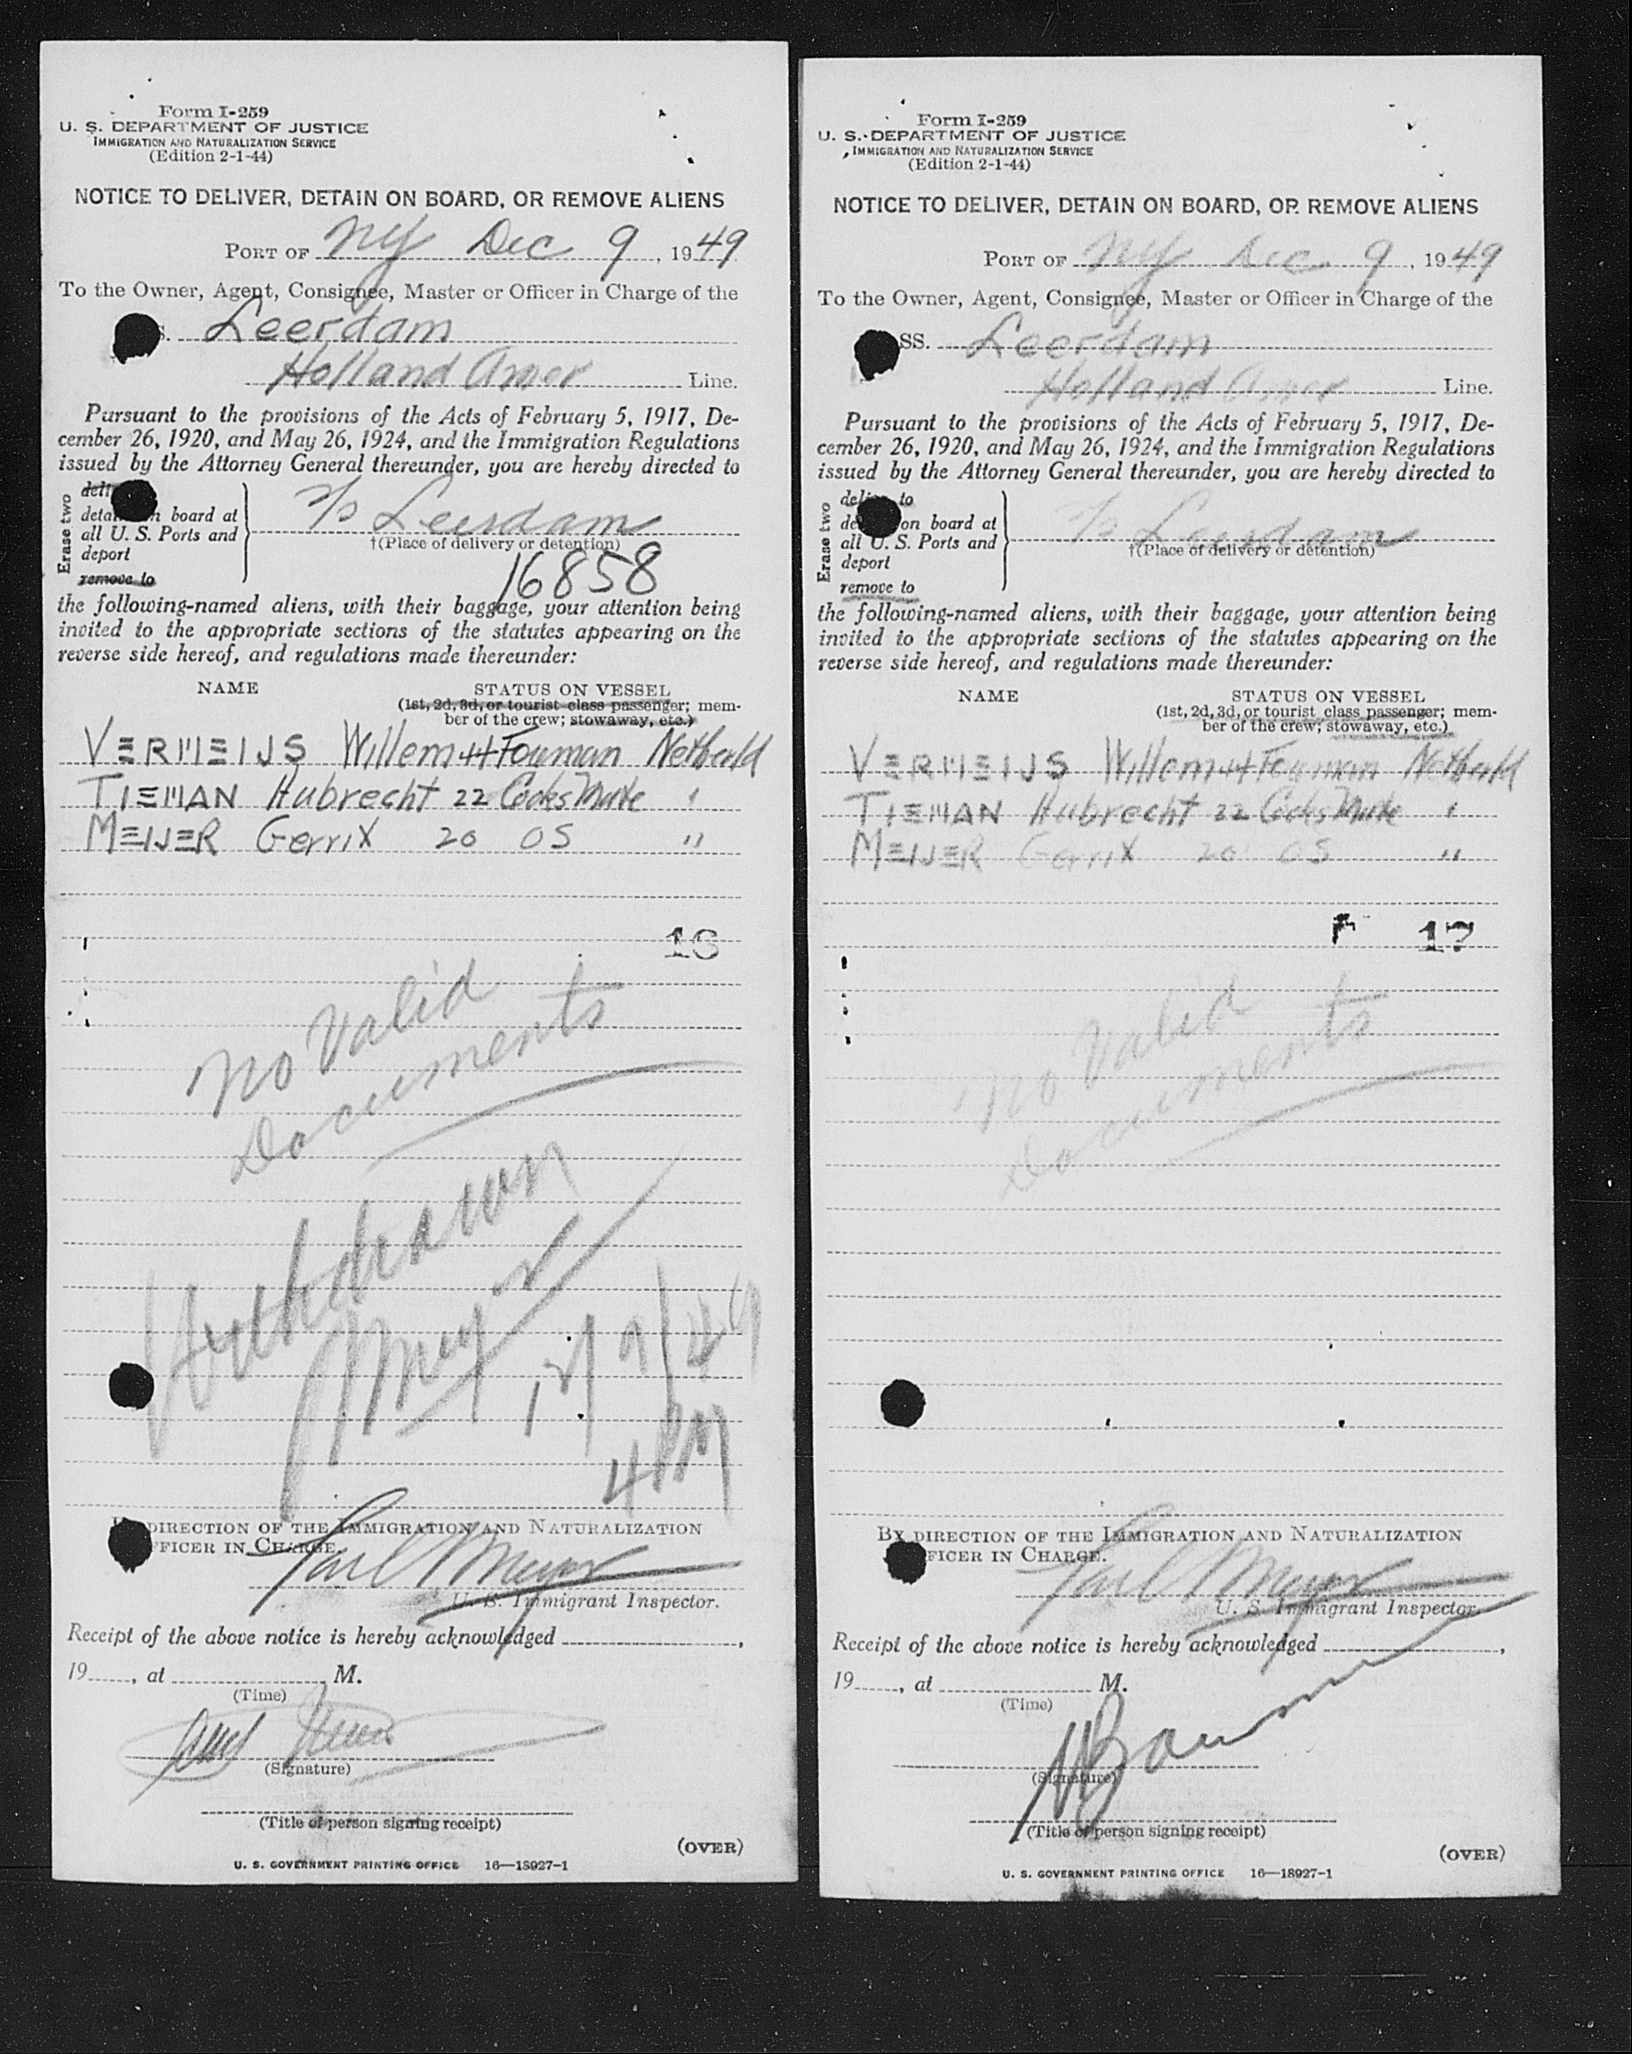 Form I-259
U. S. DEPARTMENT OF JUSTICE
IMMIGRATION AND NATURALIZATION SERVICE
(Edition 2-1-44)
NOTICE TO DELIVER, DETAIN ON BOARD, OR REMOVE ALIENS
PORT OF NY Dec 9, 1949
To the Owner, Agent, Consignee, Master or Officer in Charge of the
S. Leerdam
Holland Amer Line.
Pursuant to the provisions of the Acts of February 5, 1917, De-
cember 26, 1920, and May 26, 1924, and the Immigration Regulations
issued by the Attorney General thereunder, you are hereby directed to
Erase two
board at
all U. S. Ports and
deport
remove to
S/S Leerdam
†(Place of delivery or detention)
16858
the following-named aliens, with their baggage, your attention being
invited to the appropriate sections of the statutes appearing on the
reverse side hereof, and regulations made thereunder:
NAME STATUS ON VESSEL
(1st, 2d, 3d, or tourist class passenger; mem-
ber of the crew; stowaway, etc.)
VERMEIJS Willem 44 Netherld
TIEMAN Hubrecht 22 Cooks Mate "
MEIJER Gerrit 20 OS "
16
No Valid
Documents
Withdrawn
Meyer
12/9/49
4 PM
DIRECTION OF THE IMMIGRATION AND NATURALIZATION
FFICER IN CHARGE.
Meyer
U. S. Immigrant Inspector.
Receipt of the above notice is hereby acknowledged ,
19 , at M.
(Time)
(Signature)
(Title of person signing receipt)
(OVER)
U. S. GOVERNMENT PRINTING OFFICE 16—18927-1
Form I-259
U. S. DEPARTMENT OF JUSTICE
IMMIGRATION AND NATURALIZATION SERVICE
(Edition 2-1-44)
NOTICE TO DELIVER, DETAIN ON BOARD, OR REMOVE ALIENS
PORT OF NY Dec 9, 1949
To the Owner, Agent, Consignee, Master or Officer in Charge of the
SS. Leerdam
Holland Amer Line.
Pursuant to the provisions of the Acts of February 5, 1917, De-
cember 26, 1920, and May 26, 1924, and the Immigration Regulations
issued by the Attorney General thereunder, you are hereby directed to
Erase two
to
on board at
all U. S. Ports and
deport
remove to
S/S Leerdam
†(Place of delivery or detention)
the following-named aliens, with their baggage, your attention being
invited to the appropriate sections of the statutes appearing on the
reverse side hereof, and regulations made thereunder:
NAME STATUS ON VESSEL
(1st, 2d, 3d, or tourist class passenger; mem-
ber of the crew; stowaway, etc.)
VERMEIJS Willem 44 Netherld
TIEMAN Hubrecht 22 Cooks Mate "
MEIJER Gerrit 20 OS "
17
No Valid
Documents
BY DIRECTION OF THE IMMIGRATION AND NATURALIZATION
FICER IN CHARGE.
Meyer
U. S. Immigrant Inspector.
Receipt of the above notice is hereby acknowledged ,
19 , at M.
(Time)
(Signature)
(Title of person signing receipt)
(OVER)
U. S. GOVERNMENT PRINTING OFFICE 16—18927-1